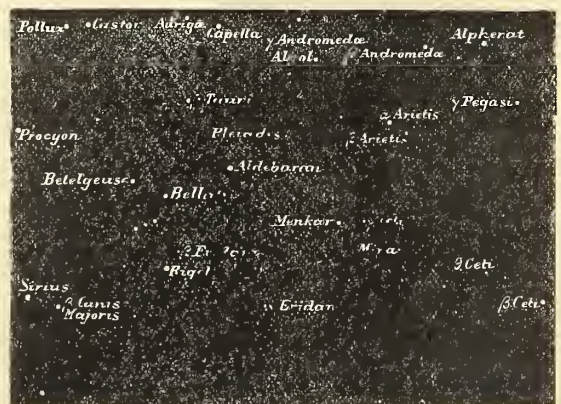 Pollux
Castor
Auriga
Capella
γ Andromedæ
Alpherat
Andromedæ
Tauri
α Arietis
γ Pegasi
Procyon
Pleiades
β Arietis
Aldebaran
Betelgeuse
Menkar
Rigel
Ceti
Sirius
β Canis
Majoris
Eridan
β Ceti